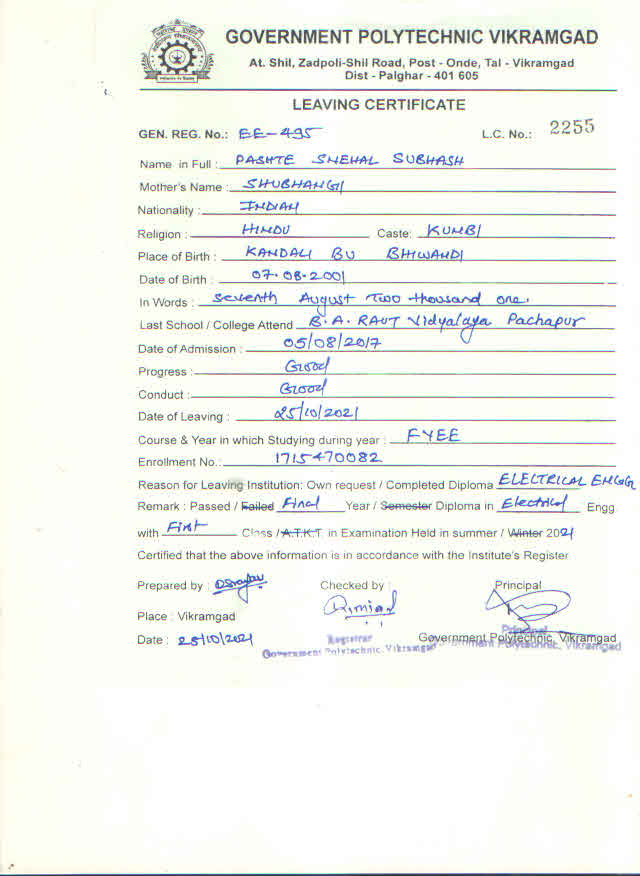 GOVERNMENT POLYTECHNIC VIKRAMGAD
At. Shil, Zadpoli-Shil Road, Post - Onde, Tal - Vikramgad
Dist - Palghar - 401 605
LEAVING CERTIFICATE
GEN. REG. No.: EE-495 L.C. No.: 2255
Name in Full : PASHTE SNEHAL SUBHASH
Mother's Name : SHUBHANGI
Nationality : INDIAN
Religion : HINDU Caste: KUNBI
Place of Birth : KANDALI BU BHIWANDI
Date of Birth : 07-08-2001
In Words : Seventh August Two thousand one.
Last School / College Attend B.A. RAUT Vidyalaya Pachapur
Date of Admission : 05/08/2017
Progress : Good
Conduct : Good
Date of Leaving : 25/10/2021
Course & Year in which Studying during year : FYEE
Enrollment No.: 1715470082
Reason for Leaving Institution: Own request / Completed Diploma ELECTRICAL ENGG
Remark : Passed / Failed Final Year / Semester Diploma in Electrical Engg.
with First Class / A.T.K.T. in Examination Held in summer / Winter 2021
Certified that the above information is in accordance with the Institute's Register.
Prepared by : Checked by : Principal
Place : Vikramgad
Date : 25/10/2021 Registrar Principal Government Polytechnic, Vikramgad
Government Polytechnic, Vikramgad Government Polytechnic, Vikramgad